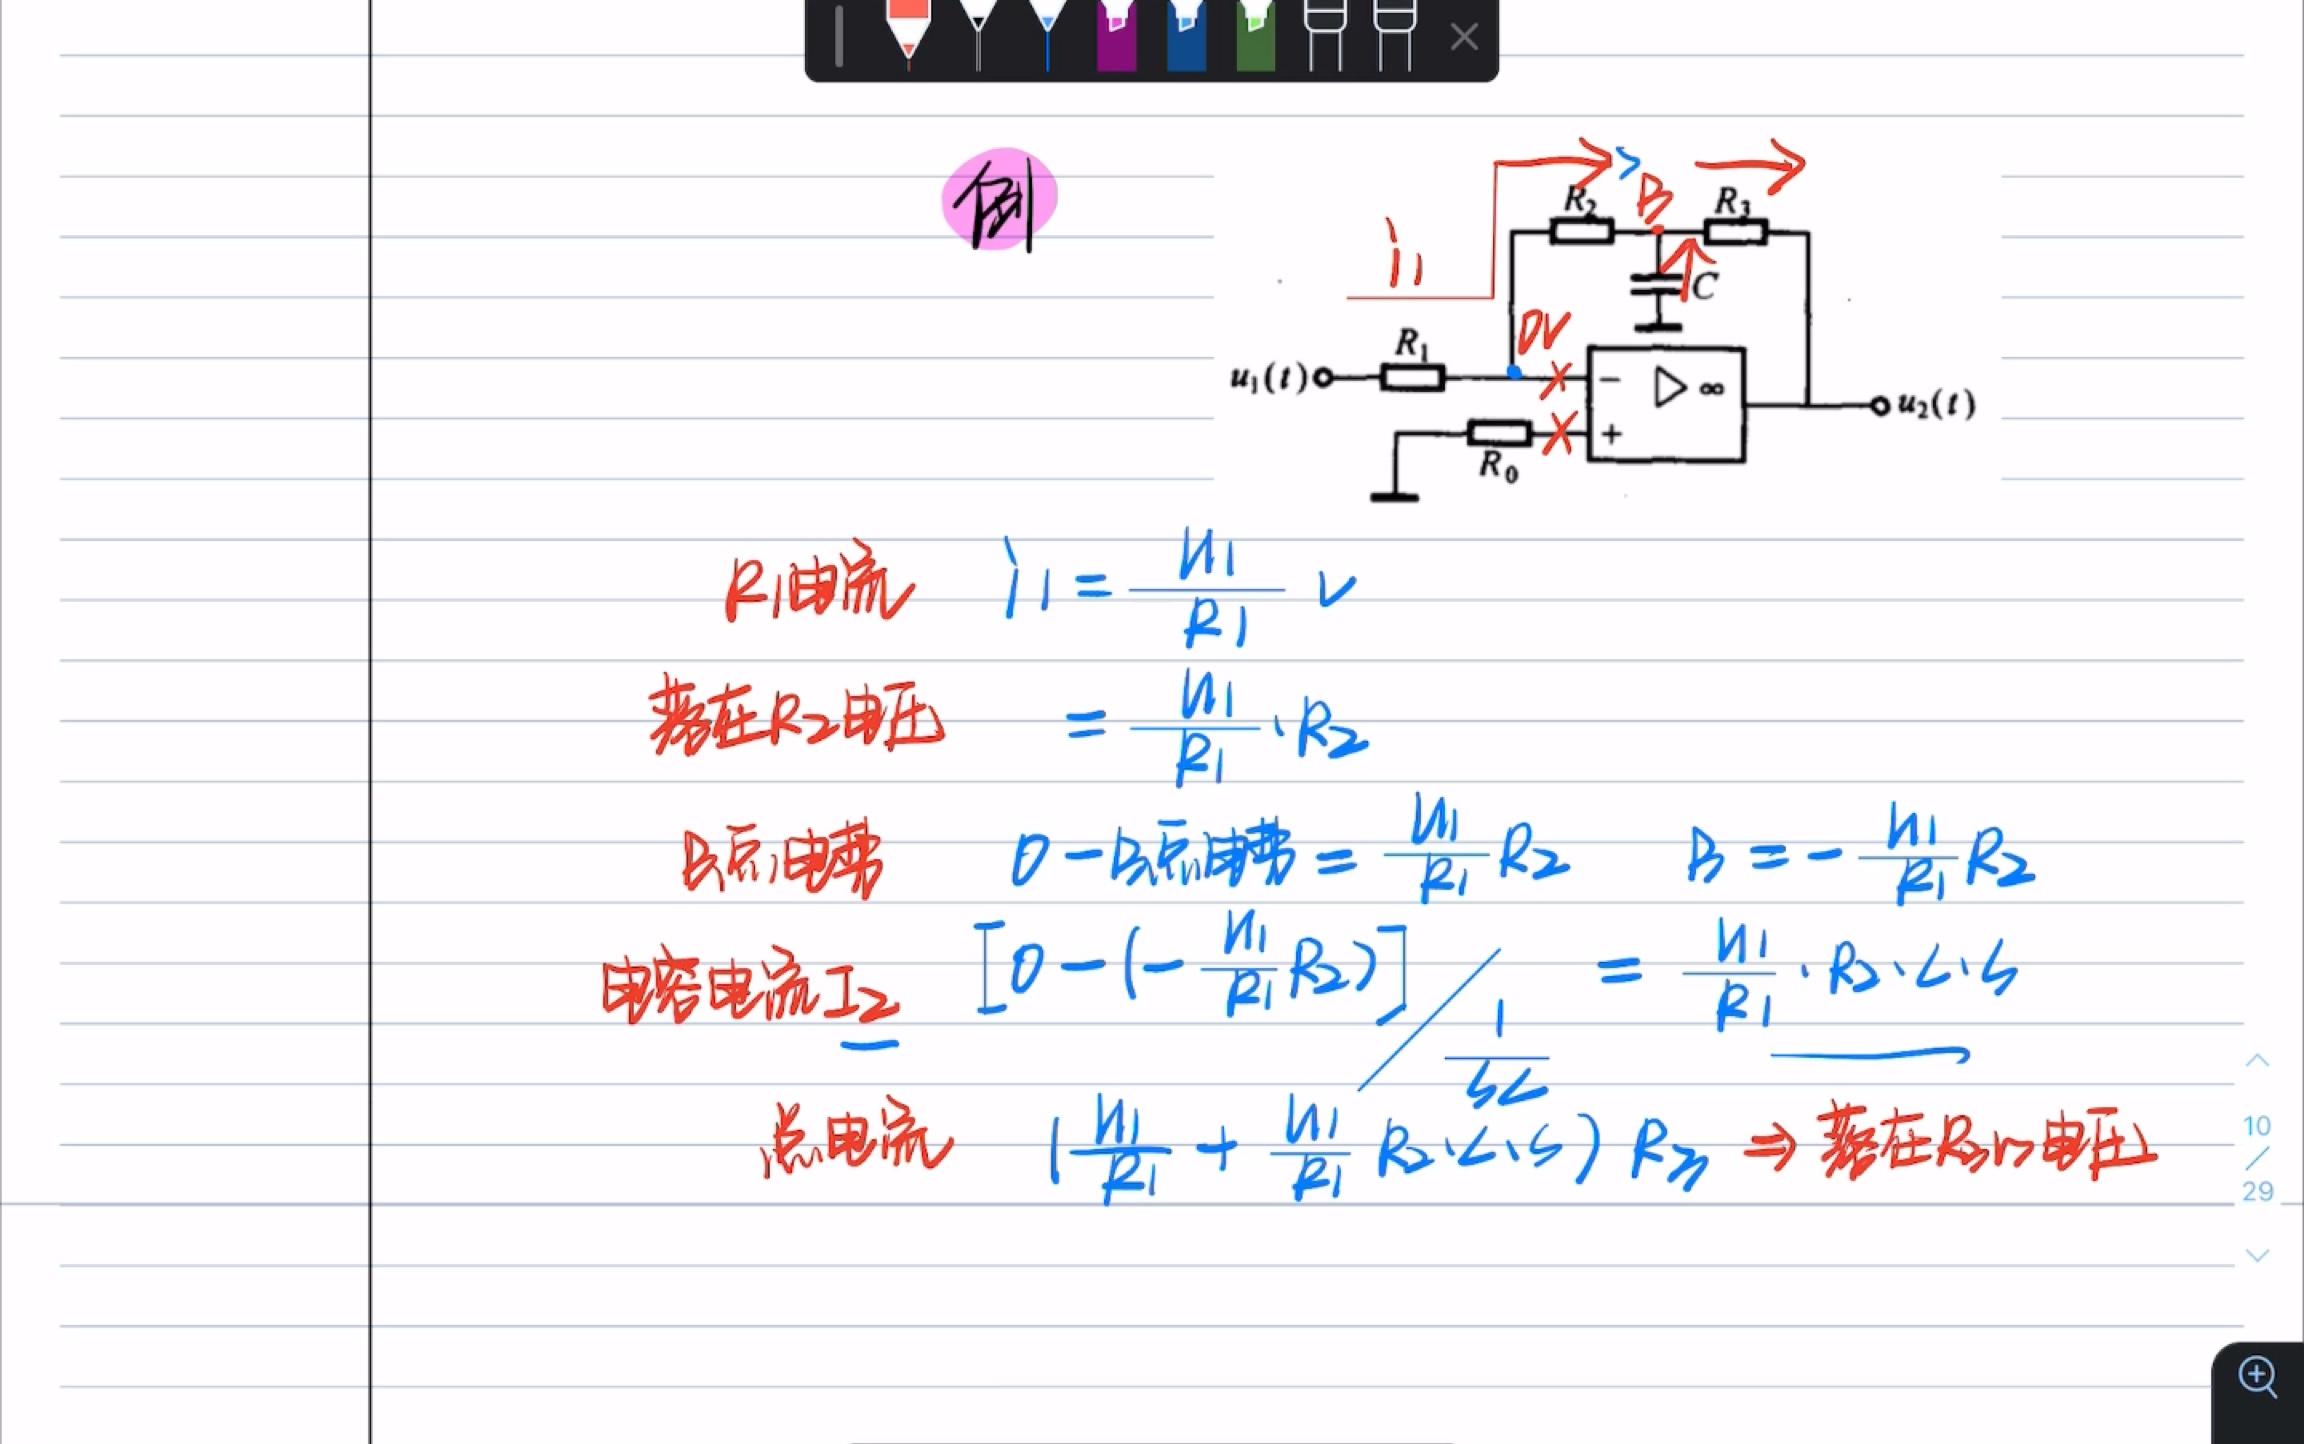 例
i1
B
R₂
R₃
C
0V
R₁
u₁(t)
− ▷ ∞
u₂(t)
+
R₀
R1电流 i1 = U1/R1 V
落在R2电压 = U1/R1 · R2
B点电势 0 - B点电势 = U1/R1 R2 B = - U1/R1 R2
电容电流I2 [0 - (- U1/R1 R2)] / 1/SC = U1/R1 · R2 · C · S
点电流 (U1/R1 + U1/R1 R2 · C · S) R3 ⇒ 落在R3的电压
10
/
29